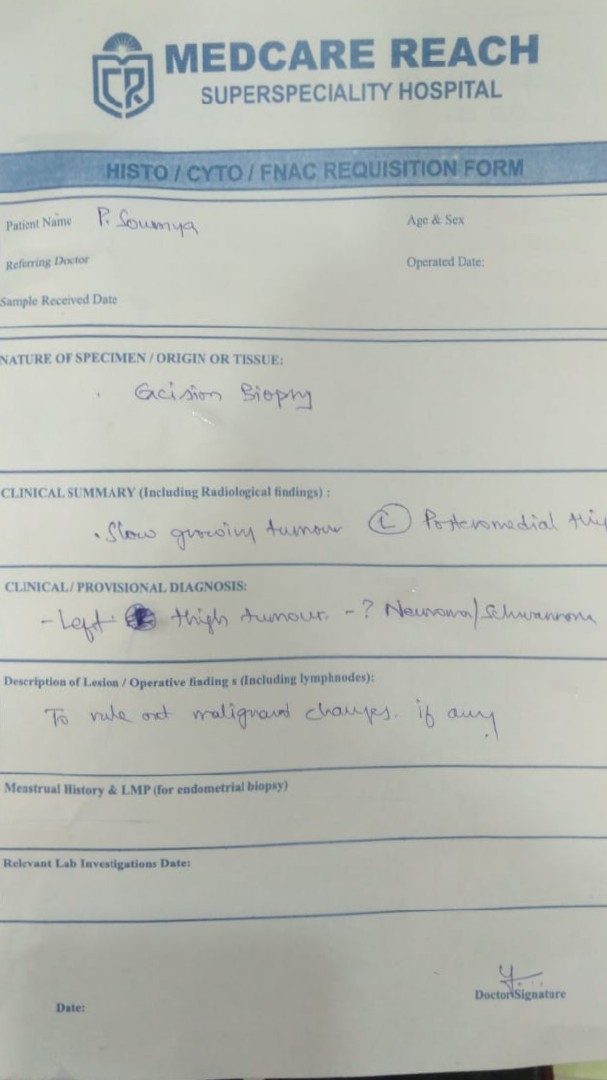 MEDCARE REACH
SUPERSPECIALITY HOSPITAL
HISTO / CYTO / FNAC REQUISITION FORM
Patient Name P. Soumya Age & Sex
Referring Doctor Operated Date:
Sample Received Date
NATURE OF SPECIMEN / ORIGIN OR TISSUE:
Excision Biopsy
CLINICAL SUMMARY (Including Radiological findings) :
. Slow growing tumour Ⓛ Posteromedial thi
CLINICAL / PROVISIONAL DIAGNOSIS:
- Left thigh tumour. - ? Neuroma/Schwannoma
Description of Lesion / Operative finding s (Including lymphnodes):
To rule out malignant changes. if any
Menstrual History & LMP (for endometrial biopsy)
Relevant Lab Investigations Date:
Doctor Signature
Date: